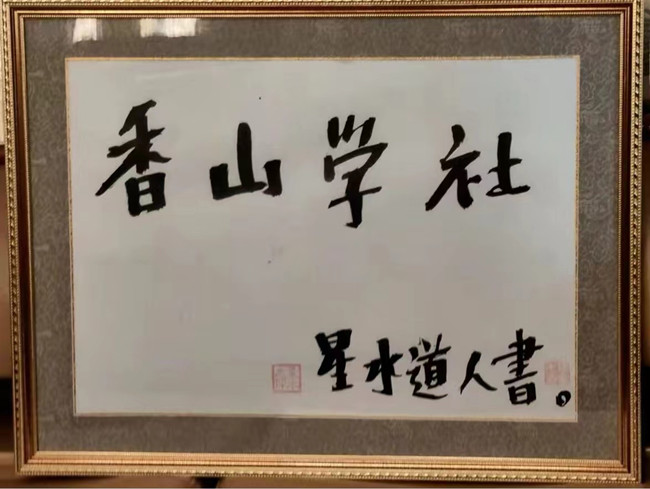 香山学社
星水道人書。